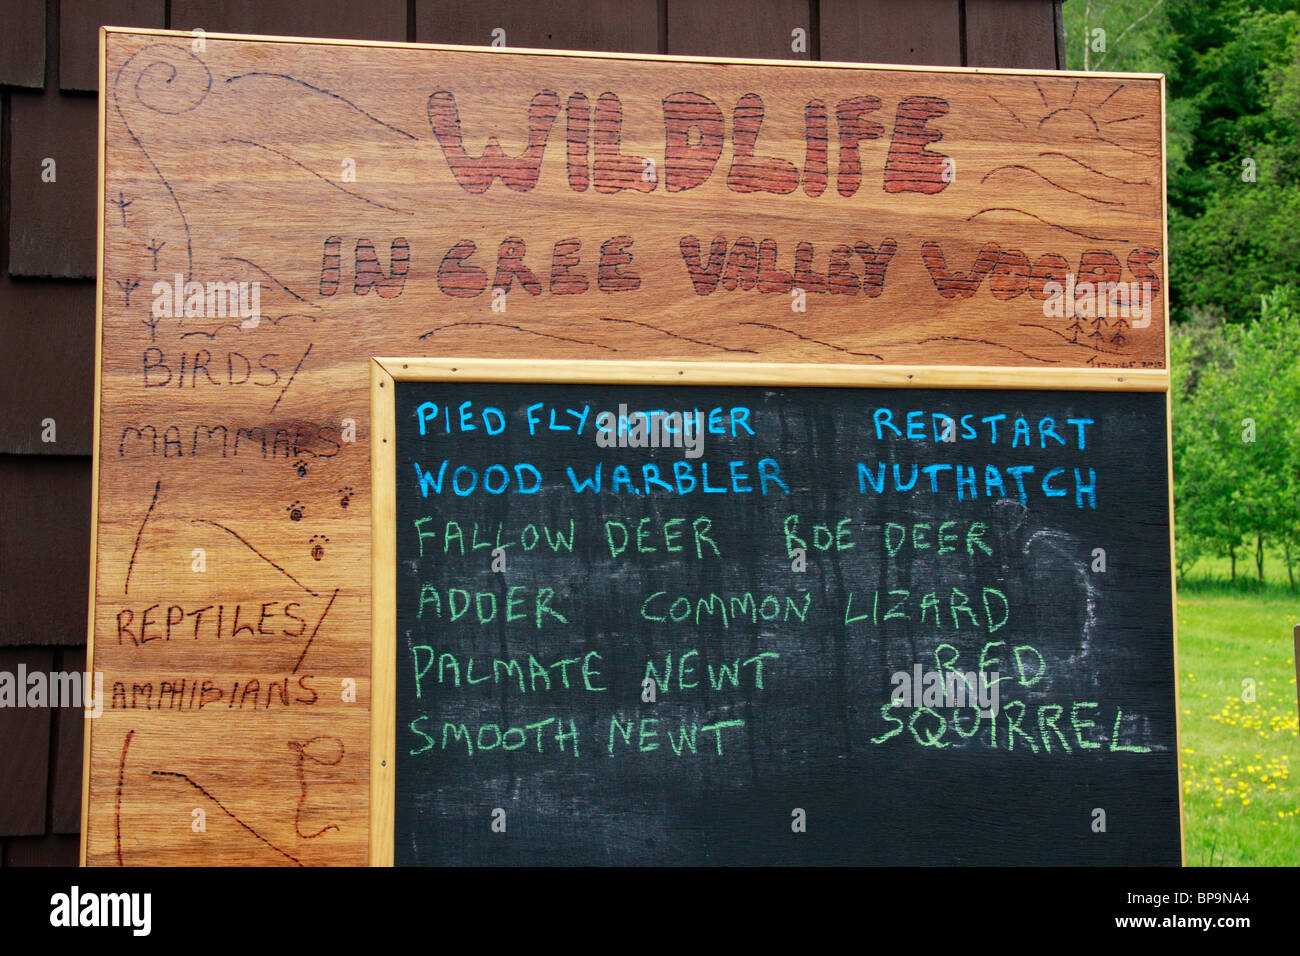 WILDLIFE
IN CREE VALLEY WOODS
BIRDS/
MAMMALS
REPTILES/
AMPHIBIANS
PIED FLYCATCHER REDSTART
WOOD WARBLER NUTHATCH
FALLOW DEER ROE DEER
ADDER COMMON LIZARD
PALMATE NEWT RED
SMOOTH NEWT SQUIRREL
alamy
Image ID: BP9NA4
www.alamy.com